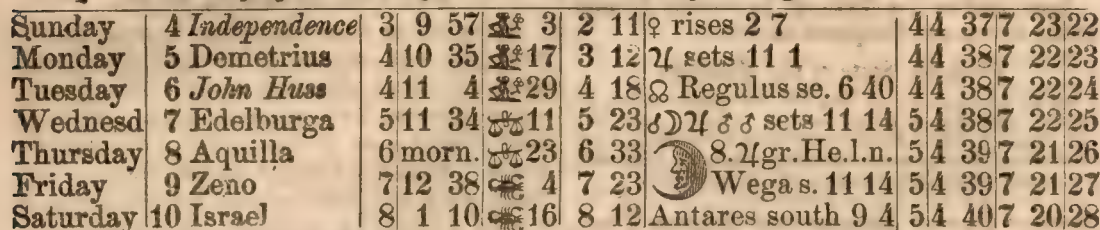 Sunday 4 Independence 3 9 57 3 2 11 ♀ rises 2 7 4 4 37 7 23 22
Monday 5 Demetrius 4 10 35 17 3 12 ♃ sets 11 1 4 4 38 7 22 23
Tuesday 6 John Huss 4 11 4 29 4 18 ☊ Regulus se. 6 40 4 4 38 7 22 24
Wednesd 7 Edelburga 5 11 34 ♎ 11 5 23 ☌☽♃ ♂ sets 11 14 5 4 38 7 22 25
Thursday 8 Aquilla 6 morn. ♎ 23 6 33 8. ♃gr.He.l.n. 5 4 39 7 21 26
Friday 9 Zeno 7 12 38 ♏ 4 7 23 Wega s. 11 14 5 4 39 7 21 27
Saturday 10 Israel 8 1 10 ♏ 16 8 12 Antares south 9 4 5 4 40 7 20 28